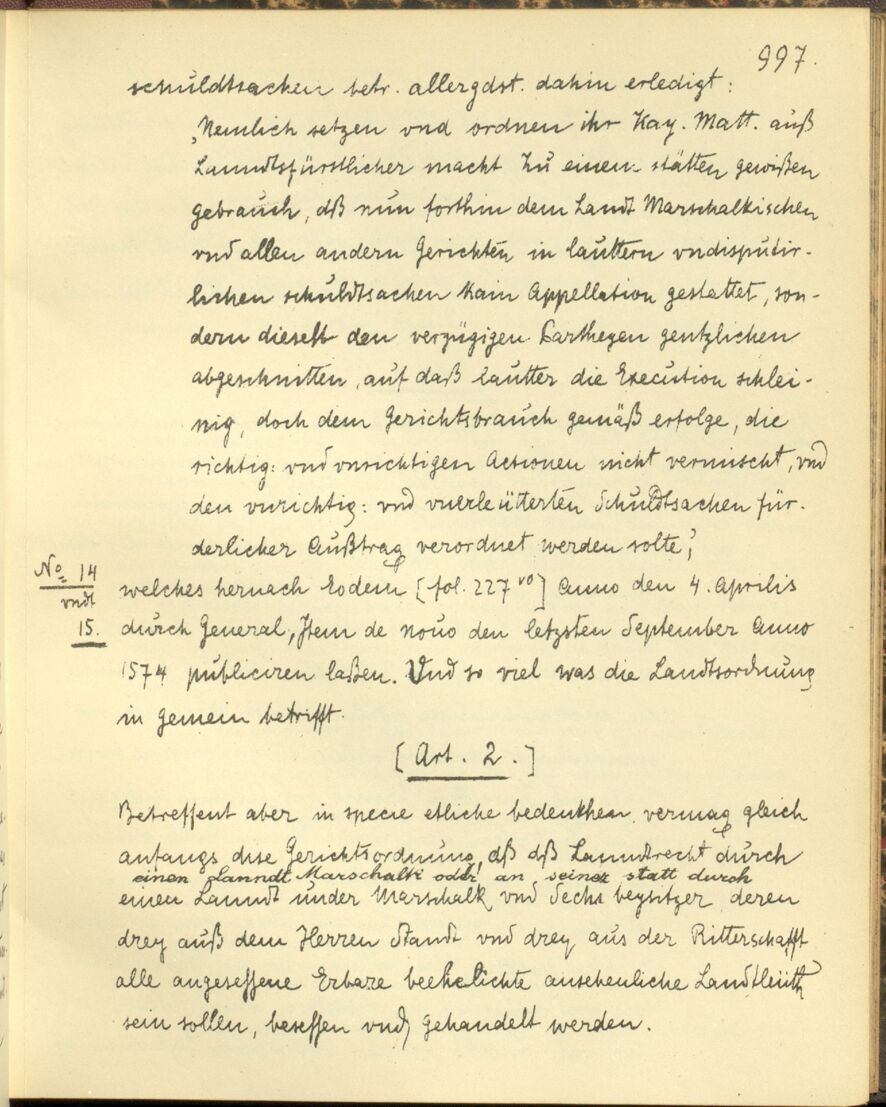 997.
schuldtsachen betr. allergdst. dahin erledigt:
„Nemlich setzen vnd ordnen ihr Kay. Matt. auß
Lanndtsfürstlicher macht Zu einen stätten gewißen
gebrauch, dß nun forthin dem Landt Marschalkischen
vnd allen andern Gerichten in lauttern vndisputir-
lichen schuldtsachen Kain Appellation gestattet, son-
dern dieselb den verzügigen Partheyen gentzlichen
abgeschnitten, auf daß lautter die Execution schlei-
nig, doch dem Gerichtsbrauch gemäß erfolge, die
richtig: vnd vnrichtigen Actionen nicht vermischt, vnd
den vnrichtig: vnd vnerleütterten Schuldtsachen für-
derlicher Außtrag verordnet werden solte,“
No 14
vndt
15.
welches hernach Eodem [fol. 227 vo] Anno den 4. Aprilis
durch General, Item de nouo den letzsten September Anno
1574 publiciren laßen. Vnd so viel was die Landtsordnung
in gemein betrifft.
[Art. 2.]
Betreffent aber in specie etliche bedenkhen vermag gleich
anfangs dise Gerichtsordnung, dß dß Lanndtrecht durch
einen Lanndt Marschalk oder an seiner statt durch
einen Lanndt under Marschalk vnd Sechs beysitzer deren
drey auß dem Herren Standt vnd drey aus der Ritterschafft
alle angesessene Erbare beehelichte ansehenliche Landtleüth
sein sollen, besessen vnd gehandelt werden.